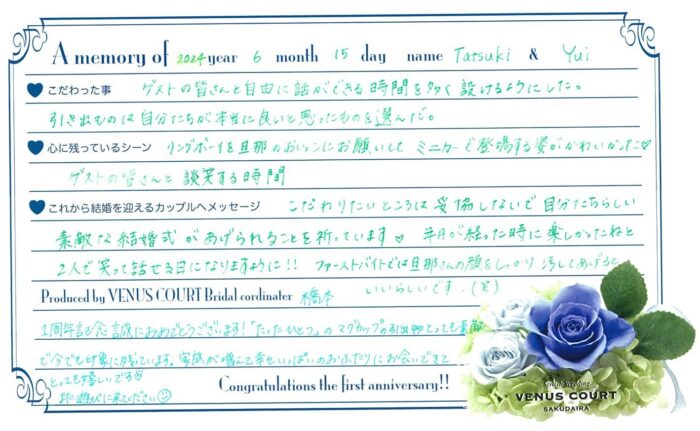 A memory of 2024 year 6 month 15 day name Tatsuki & Yui
こだわった事 ゲストの皆さんと自由に話ができる時間を多く設けるようにした。
引き出ものは自分たちが本当に良いと思ったものを選んだ。
心に残っているシーン リングボーイを旦那のおいっこにお願いして ミニカーで登場する姿がかわいかった♡
ゲストの皆さんと談笑する時間
これから結婚を迎えるカップルへメッセージ こだわりたいところは妥協しないで自分たちらしい
素敵な結婚式があげられることを祈っています♡ 年月が経った時に楽しかったねと
2人で笑って話せる日になりますように!! ファーストバイトでは旦那さんの顔をしっかり汚してあげると
いいらしいです.(笑)
Produced by VENUS COURT Bridal cordinater 橋本
1周年記念誠におめでとうございます!「たったひとつ」のマグカップの引出物とっても素敵
で今でも印象に残ています。家族が増えて幸せいっぱいのおふたりにお会いできて
とっても嬉しいです
また遊びに来てください☺
Congratulations the first anniversary!!
VENUS COURT
SAKUDAIRA